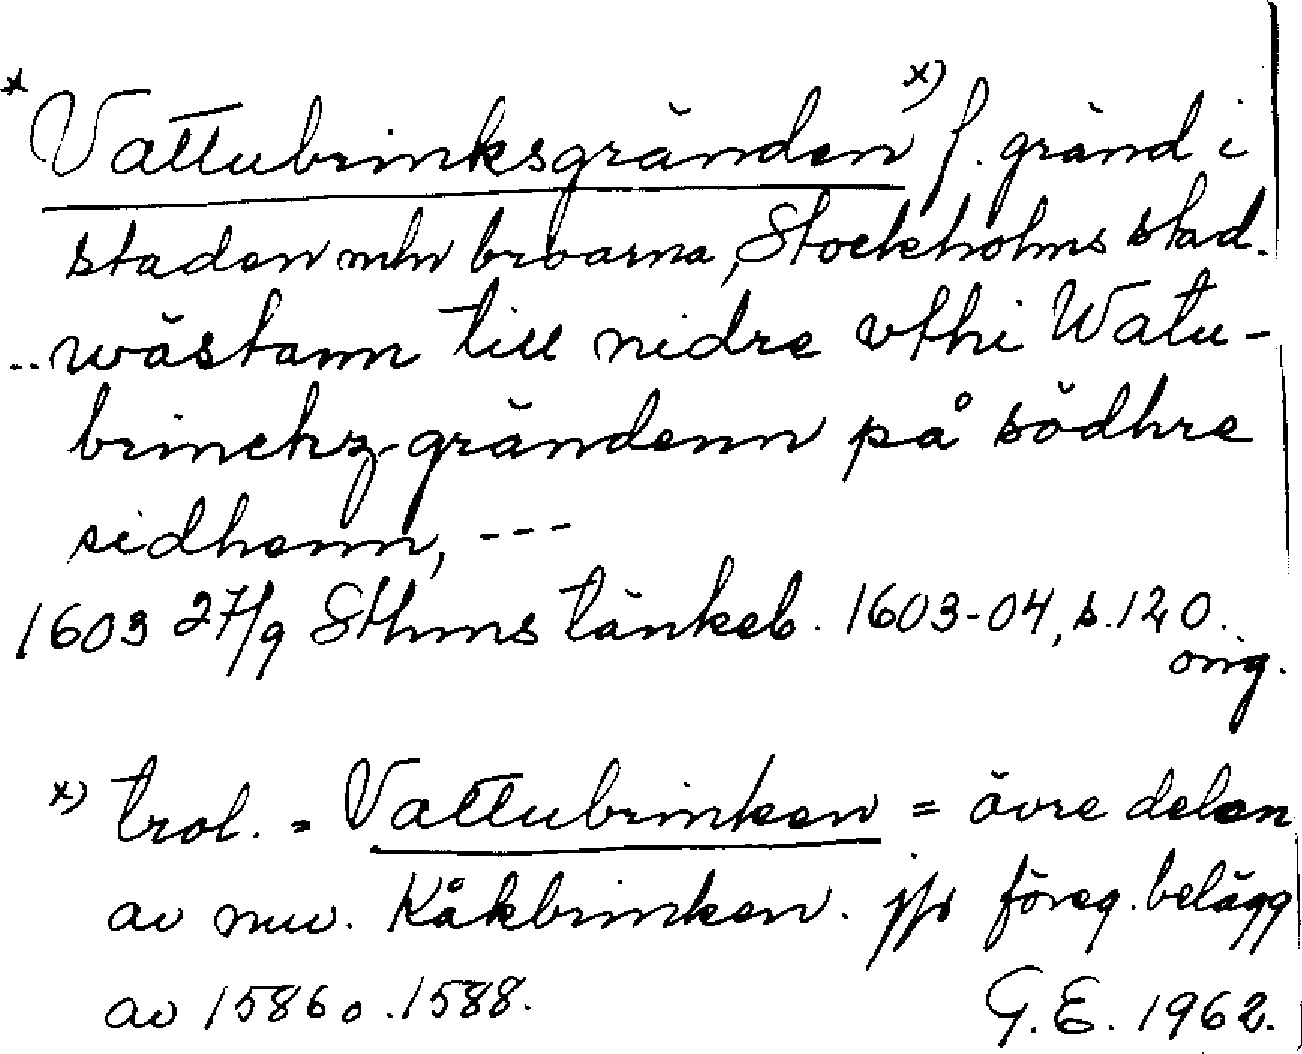 * Vattubrinksgränden x) f. gränd i
staden mln broarna, Stockholms stad.
.. wästann till nidre vthi Watu-
brinckz grändenn på södhre
sidhenn, ---
1603 27/9 Sthms tänkeb. 1603-04, s. 120.
orig.
x) trol. = Vattubrinken = övre delen
av nuv. Kåkbrinken. jfr föreg. belägg
av 1586 o. 1588.
G.E. 1962.